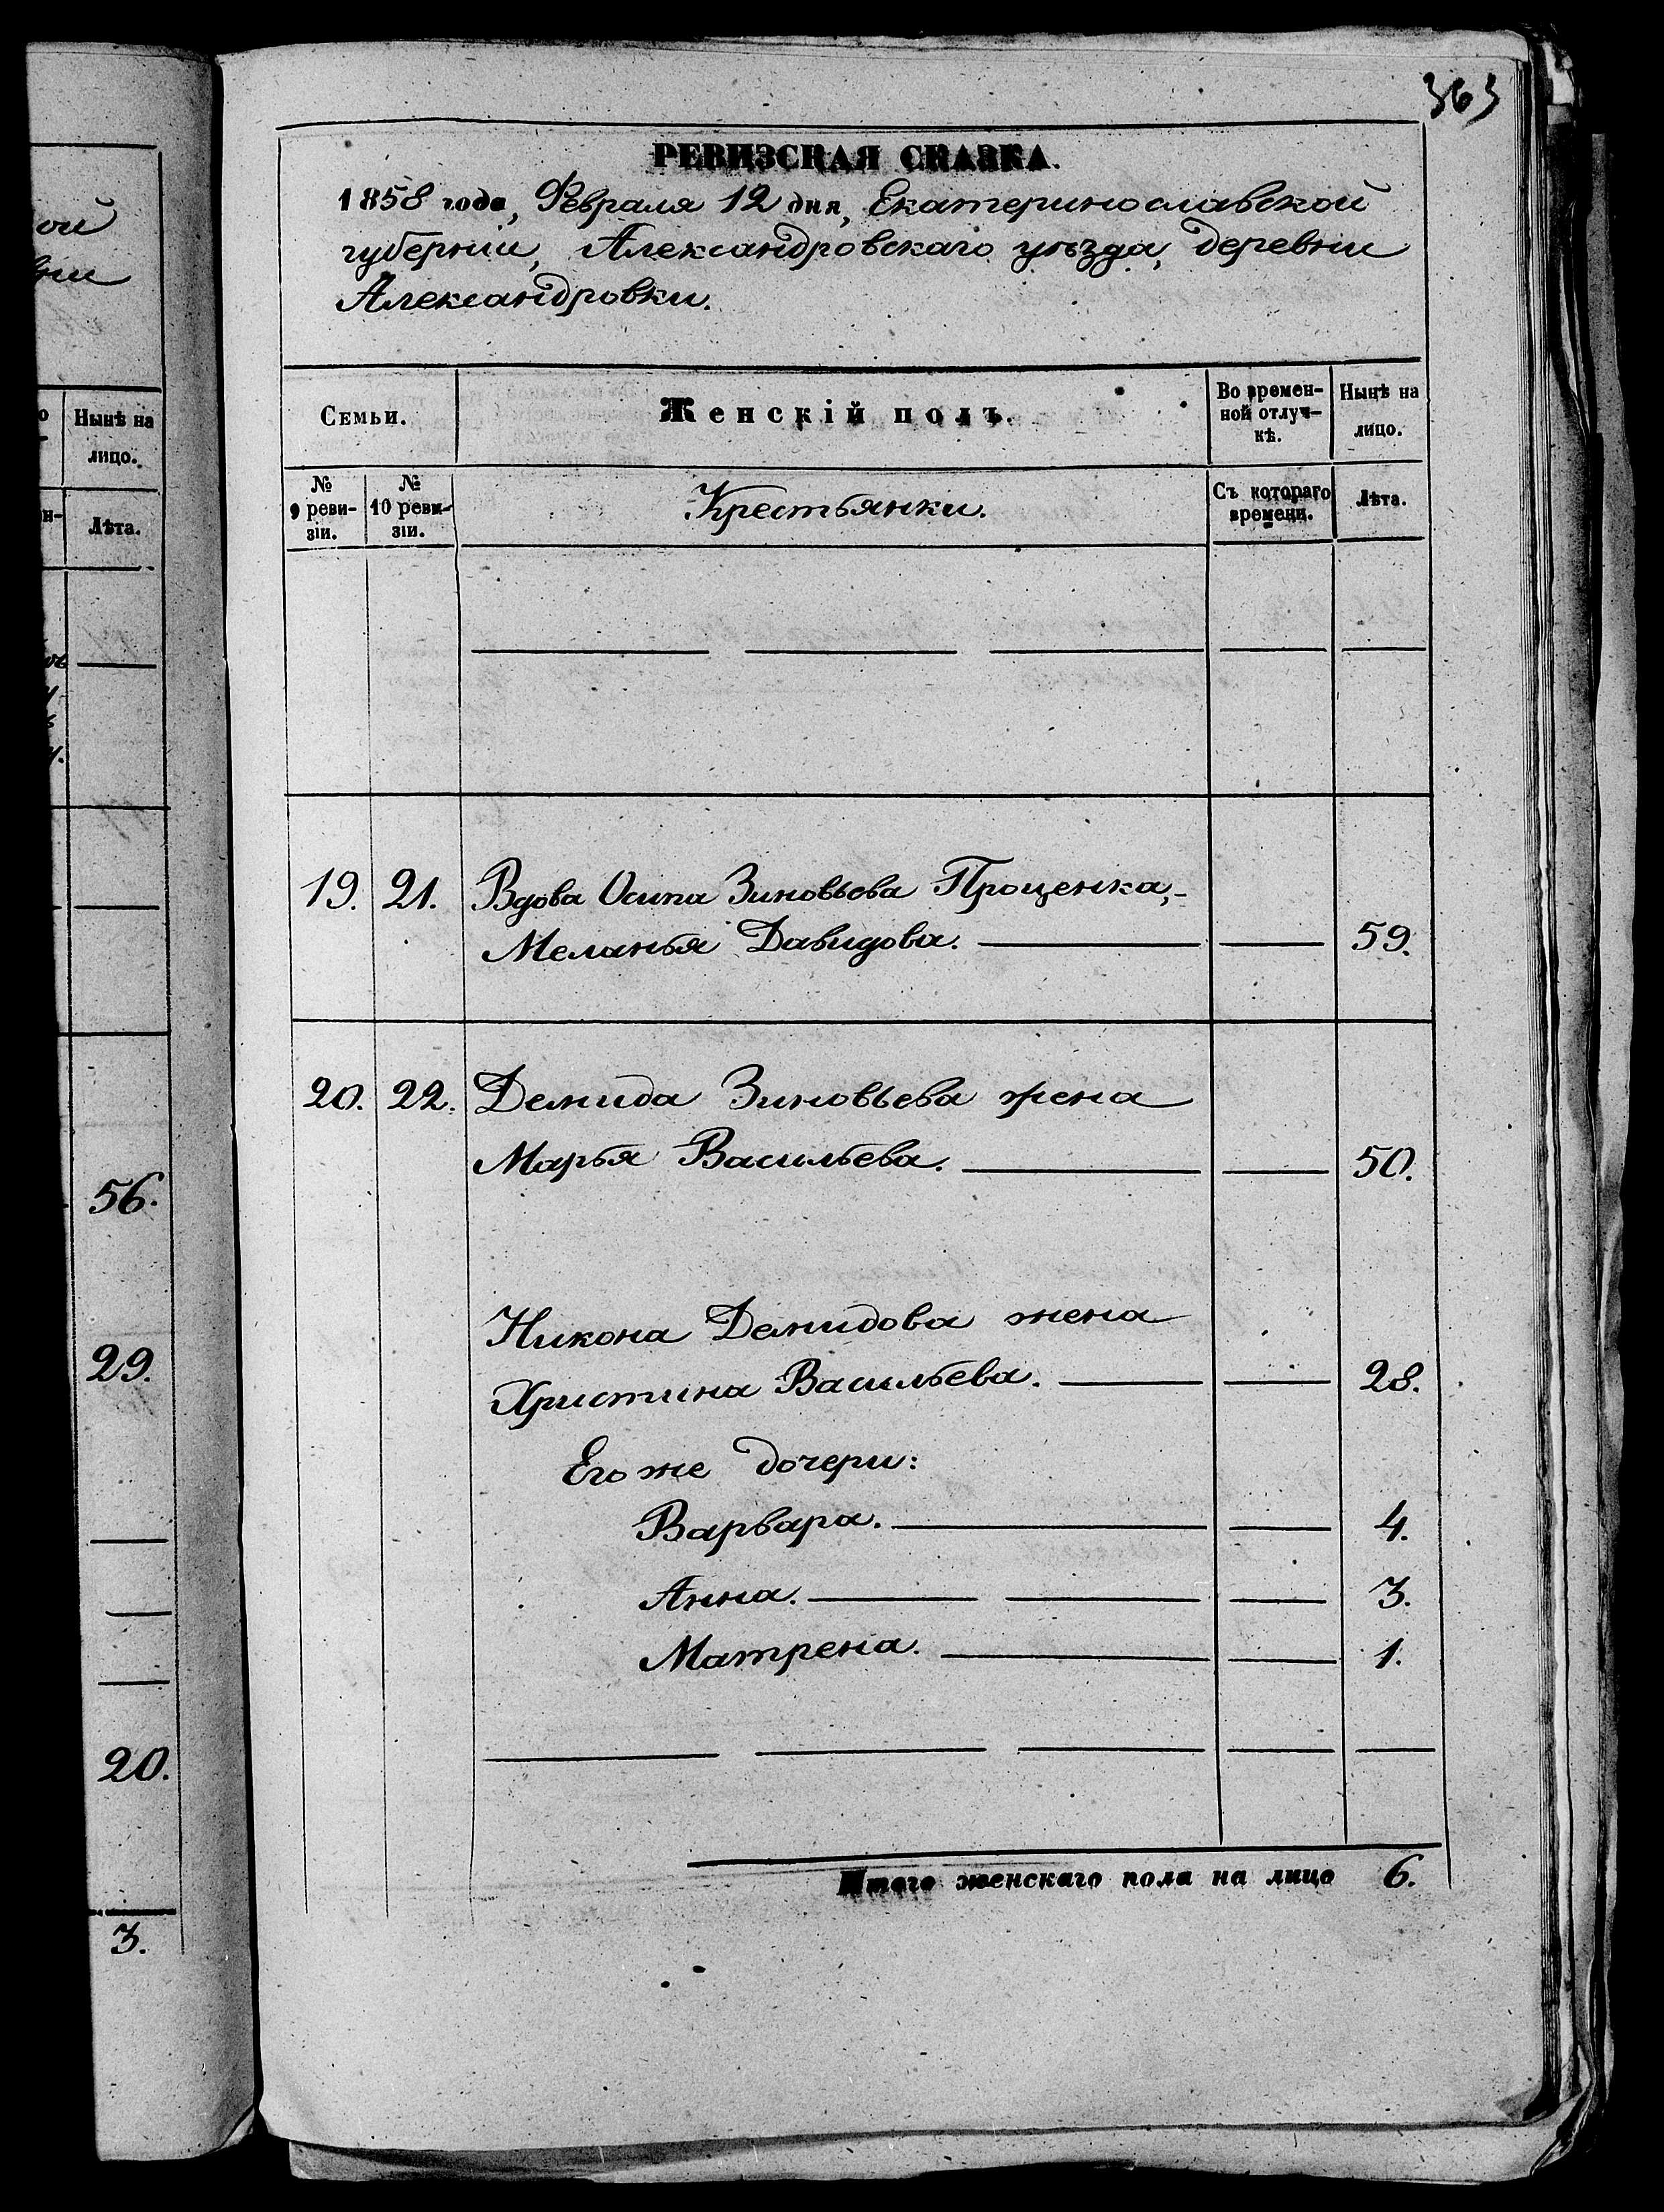 ой
вни
Нынѣ на
лицо.
Лѣта.
56.
29.
20.
3.
363
РЕВИЗСКАЯ СКАЗКА.
1858 года, Февраля 12 дня, Екатеринославской
губерніи, Александровскаго уѣзда, деревни
Александровки.
Семьи.
Женскій полъ.
Во времен-
ной отлуч-
кѣ.
Нынѣ на
лицо.
№
9 реви-
зіи.
№
10 реви-
зіи.
Крестьянки.
Съ котораго
времени.
Лѣта.
19. 21. Вдова Осипа Зиновьева Проценка,-
Меланья Давидова. 59.
20. 22. Демида Зиновьева жена
Марья Васильева. 50.
Никона Демидова жена
Христина Васильева. 28.
Его же дочери:
Варвара. 4.
Анна. 3.
Матрена. 1.
Итого женскаго пола на лицо 6.